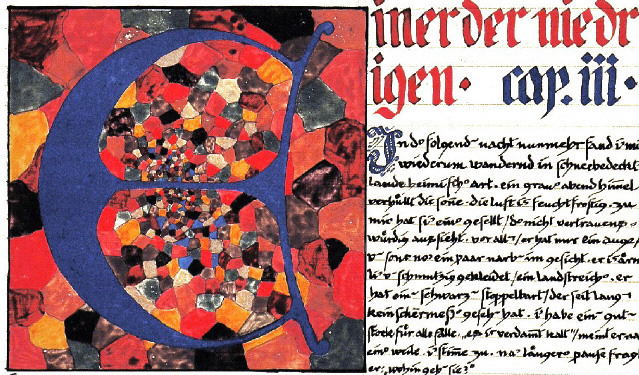 Einer der niedr
igen. cap. iii.
In do folgend nacht nunmehr fand i mi
wiederum wandernd in schneebedeckt
lande heimisch art. ein grau abendhimel
verhüllt die sone. die luft is feuchtfrostig. zu
mir hat si einer gesellt / der nicht vertrauens
würdig aussieht. vor all: er hat nur ein auge,
v sonst no ein paar narb im gesicht. er is ärm
li v schmutzig gekleidet / ein landstreicher. er
hat ein schwarz stoppelbart / der seit lang
kein schermeser geseh hat. i habe ein gut
stock für alle fälle. „es is verdamt kalt" / meint er na
eine weile. i stime zu. na längerer pause frag
er: „wohin geh sie?"